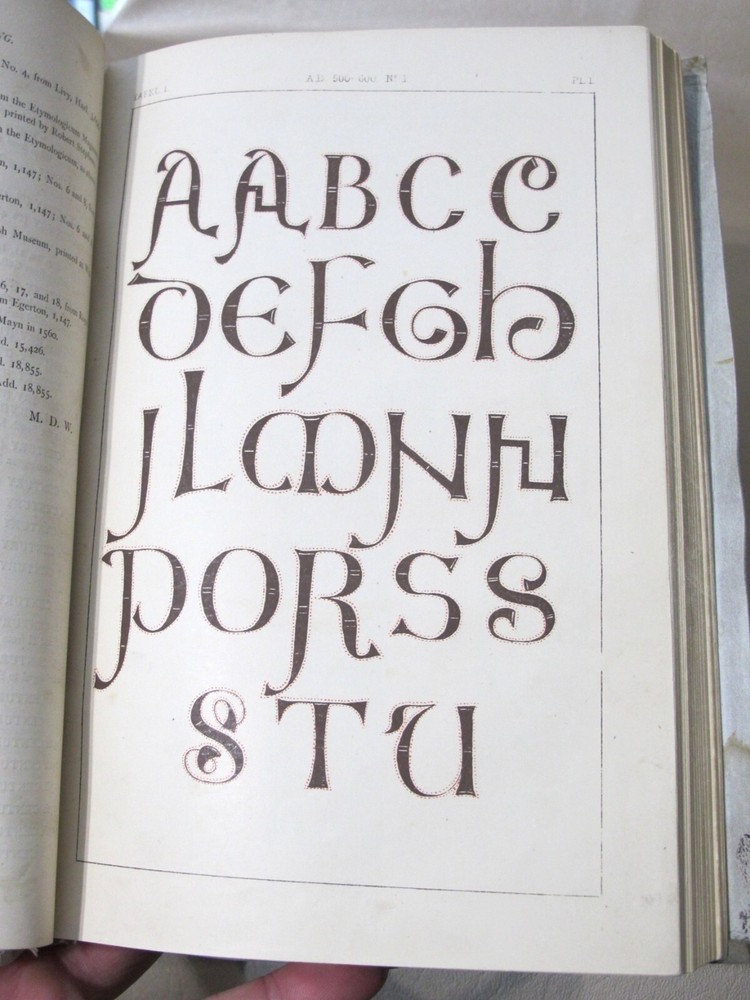 NG.
No. 4, from Livy, Harl.
the Etymologicum
printed by Robert
the Etymologicon,
1,147; Nos. 6 and 8,
erton, 1,147; Nos. 6
sh Museum, printed at
6, 17, and 18, from
m Egerton, 1,147.
Mayn in 1560.
d. 15,426.
l. 18,855.
Add. 18,855.
M. D. W.
A.D. 500-600 Nº 1 PL.1
A A B C C
D E F G h
J L M N N
P O R S S
S T U